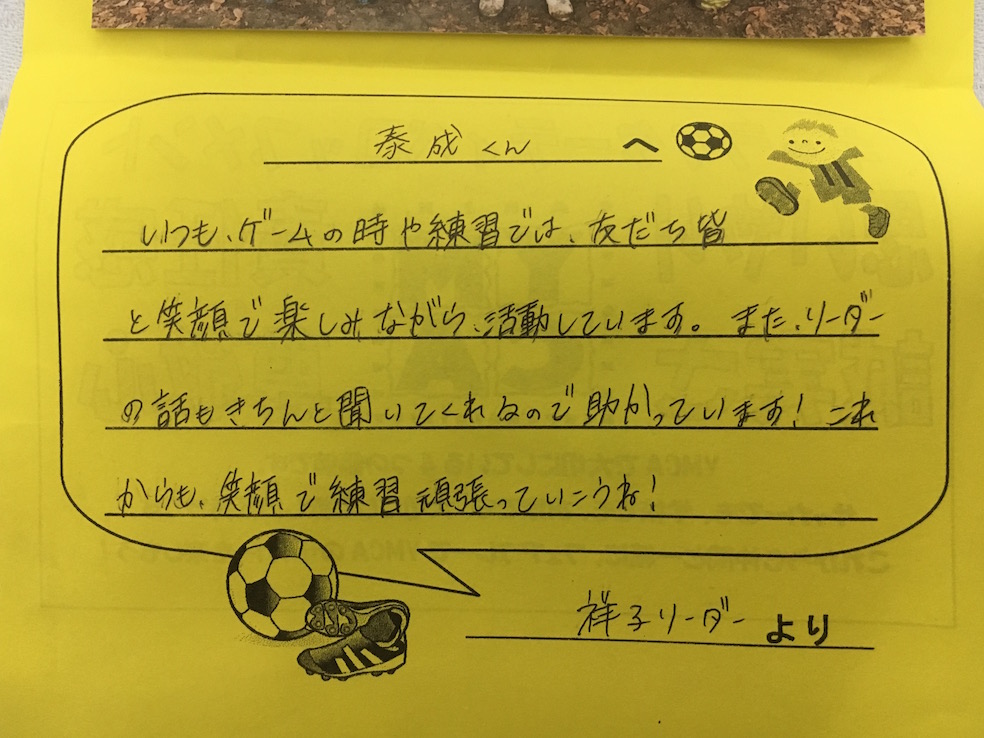 泰成くん へ
いつも、ゲームの時や練習では、友だち皆
と笑顔で楽しみながら、活動しています。また、リーダー
の話もきちんと聞いてくれるので助かっています！これ
からも、笑顔で練習頑張っていこうね！
祥子リーダー より